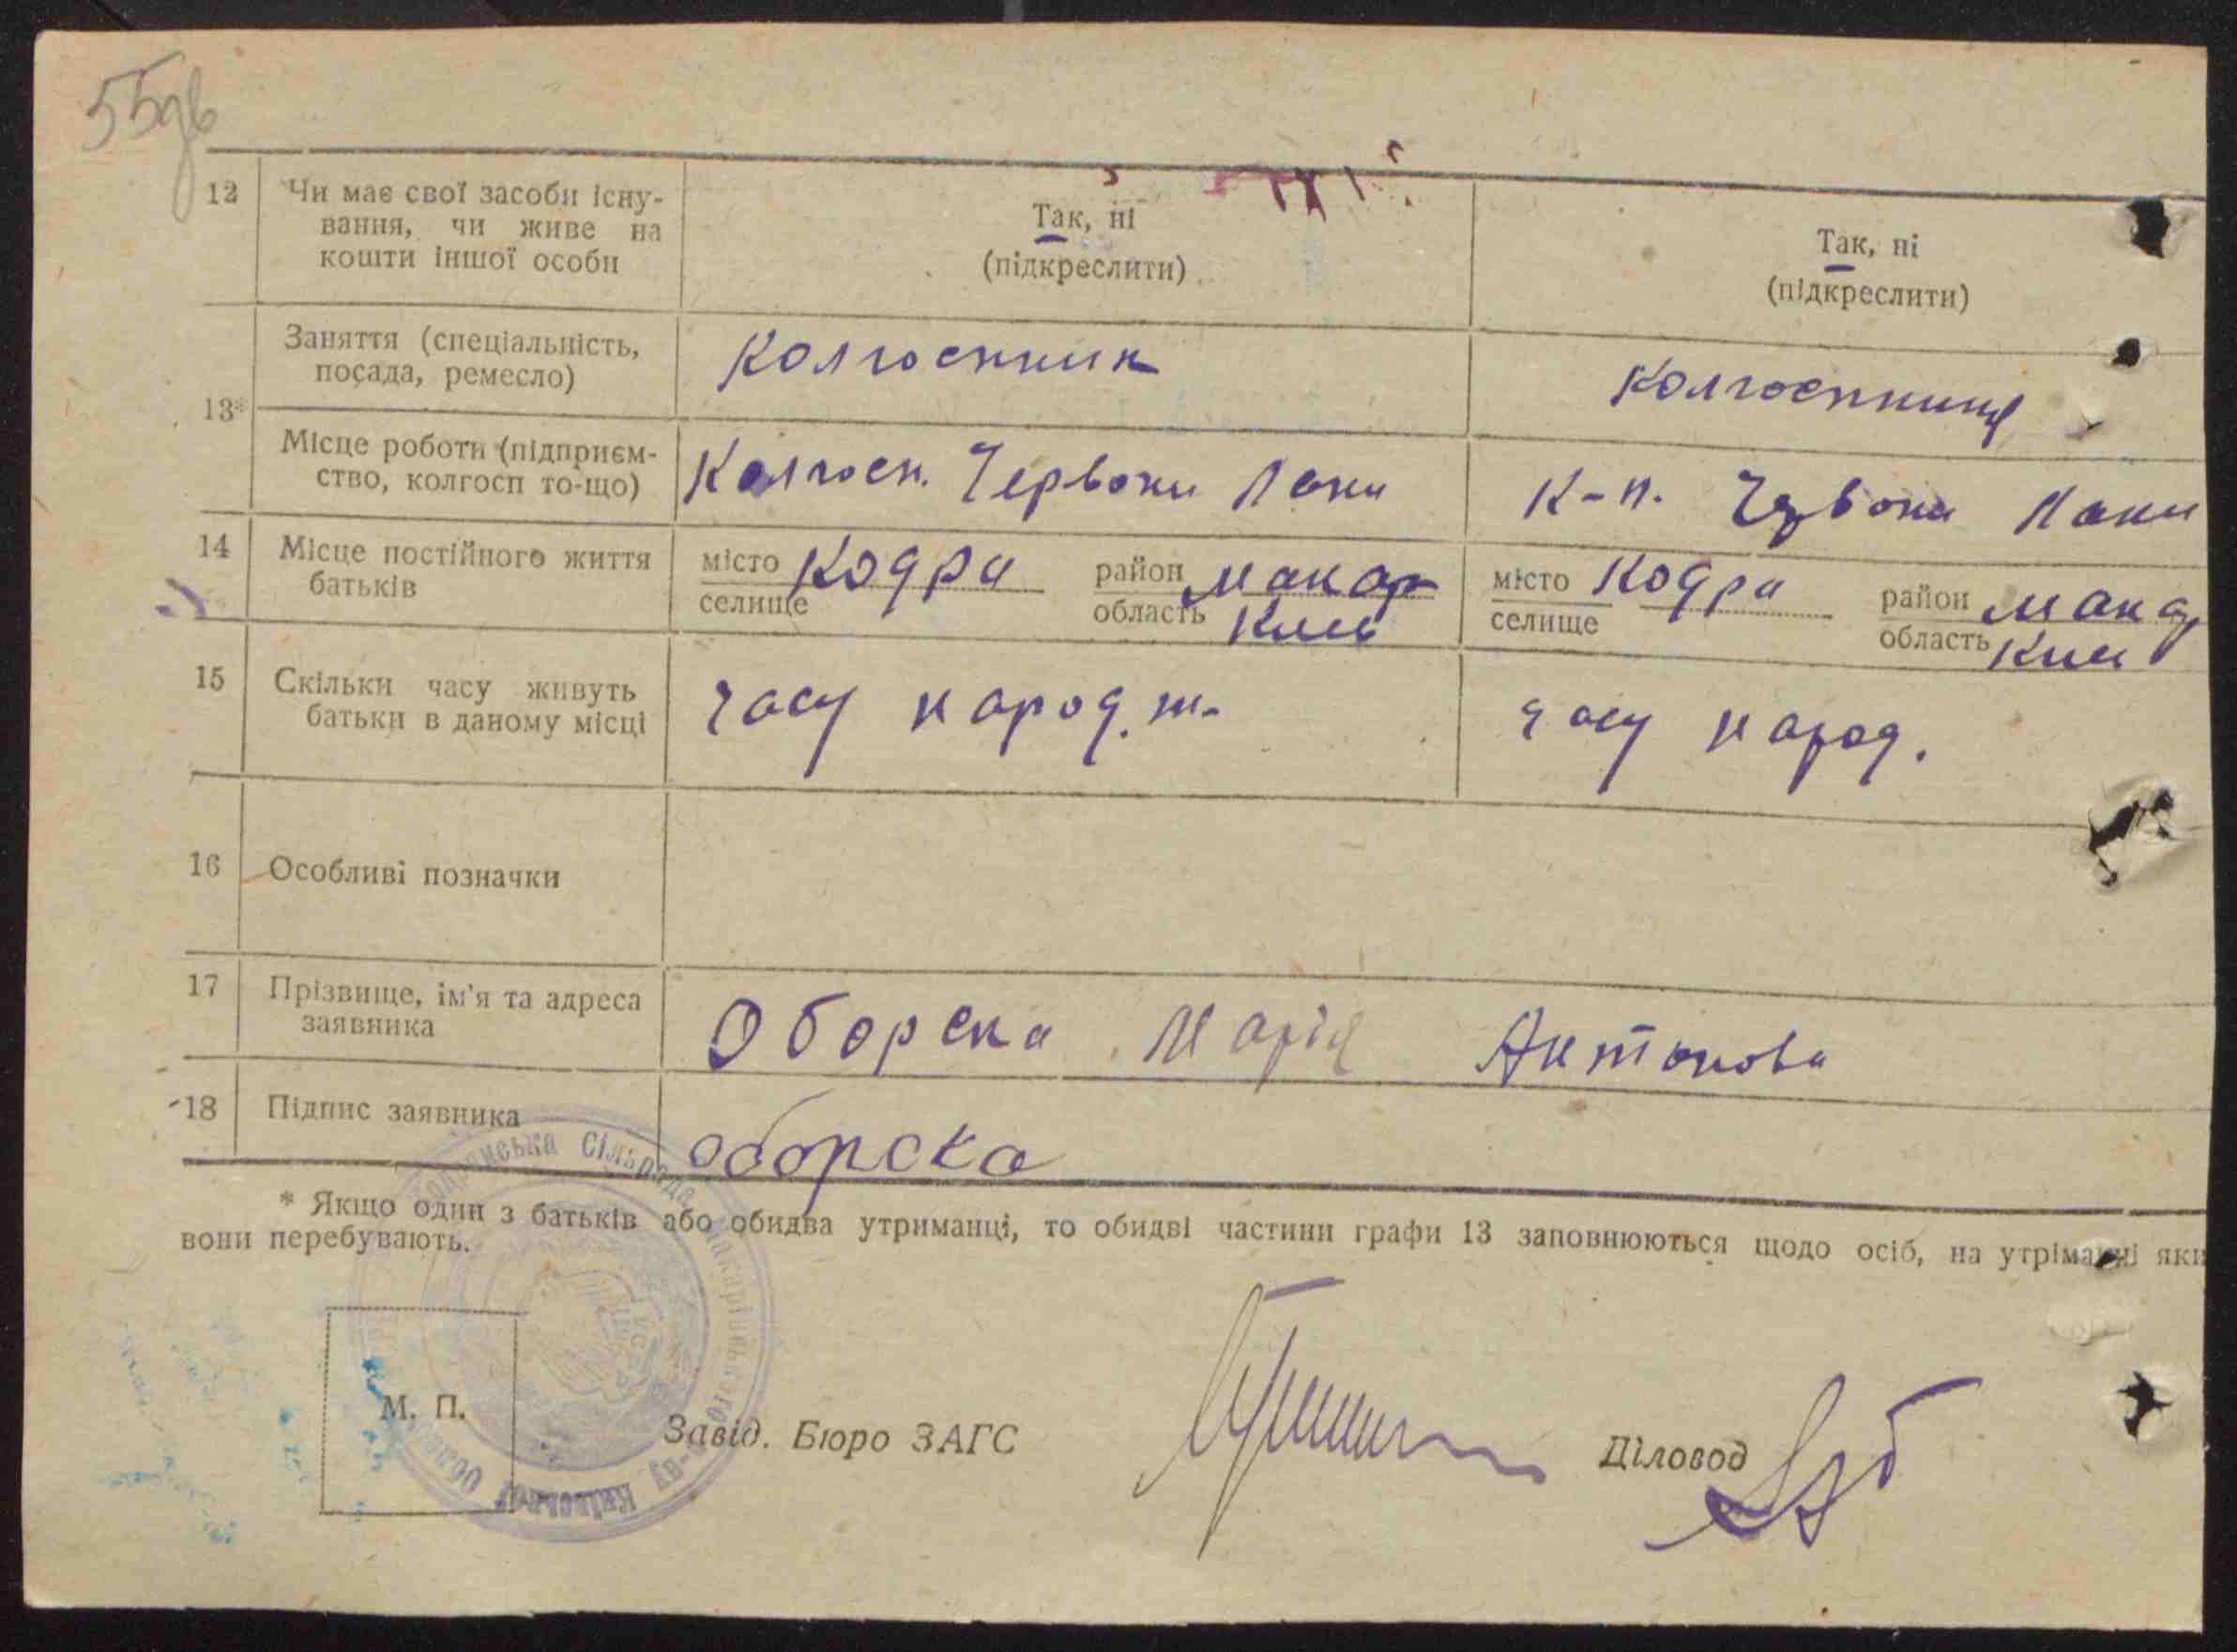 55зв
12 Чи має свої засоби існу-
вання, чи живе на
кошти іншої особи
Так, ні
(підкреслити)
Так, ні
(підкреслити)
13*
Заняття (спеціальність,
посада, ремесло)
Колгоспник
Колгоспниця
Місце роботи (підприєм-
ство, колгосп то-що)
Колгосп. Червони Лани
К-п. Червони Лани
14 Місце постійного життя
батьків
місто Кодра район Макар
селище область Київ
місто Кодра район Макар
селище область Київ
15 Скільки часу живуть
батьки в даному місці
часу народ. ж.
часу народ.
16 Особливі позначки
17 Прізвище, ім'я та адреса
заявника
Оборска Марія Антонова
18 Підпис заявника
оборска
* Якщо один з батьків або обидва утриманці, то обидві частини графи 13 заповнюються щодо осіб, на утріманні яки
вони перебувають.
М. П.
Завід. Бюро ЗАГС
Діловод
Сільрада Макарівського р-ну Київської Області